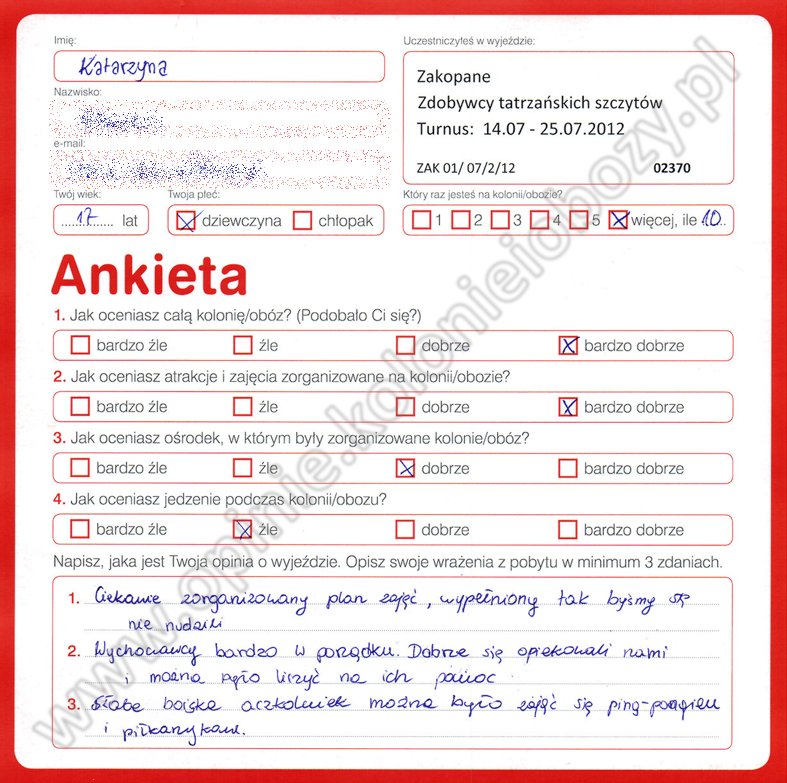 Imię:
Uczestniczyłeś w wyjeździe:
Katarzyna
Zakopane
Zdobywcy tatrzańskich szczytów
Turnus: 14.07 - 25.07.2012
ZAK 01/ 07/2/12 02370
Nazwisko:
e-mail:
Twój wiek:
Twoja płeć:
Który raz jesteś na kolonii/obozie?
17 lat
dziewczyna chłopak
1 2 3 4 5 więcej, ile 10
Ankieta
1. Jak oceniasz całą kolonię/obóz? (Podobało Ci się?)
bardzo źle źle dobrze bardzo dobrze
2. Jak oceniasz atrakcje i zajęcia zorganizowane na kolonii/obozie?
bardzo źle źle dobrze bardzo dobrze
3. Jak oceniasz ośrodek, w którym były zorganizowane kolonie/obóz?
bardzo źle źle dobrze bardzo dobrze
4. Jak oceniasz jedzenie podczas kolonii/obozu?
bardzo źle źle dobrze bardzo dobrze
Napisz, jaka jest Twoja opinia o wyjeździe. Opisz swoje wrażenia z pobytu w minimum 3 zdaniach.
1. Ciekawie zorganizowany plan zajęć, wypełniony tak byśmy się
nie nudzili
2. Wychowawcy bardzo w porządku. Dobrze się opiekowali nami
i można było liczyć na ich pomoc
3. Słabe boiska aczkolwiek można było zająć się ping-pongiem
i piłkarzykami.
www.opinie.kolonieiobozy.pl